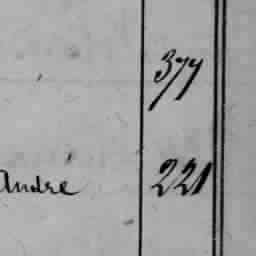 377
André 221